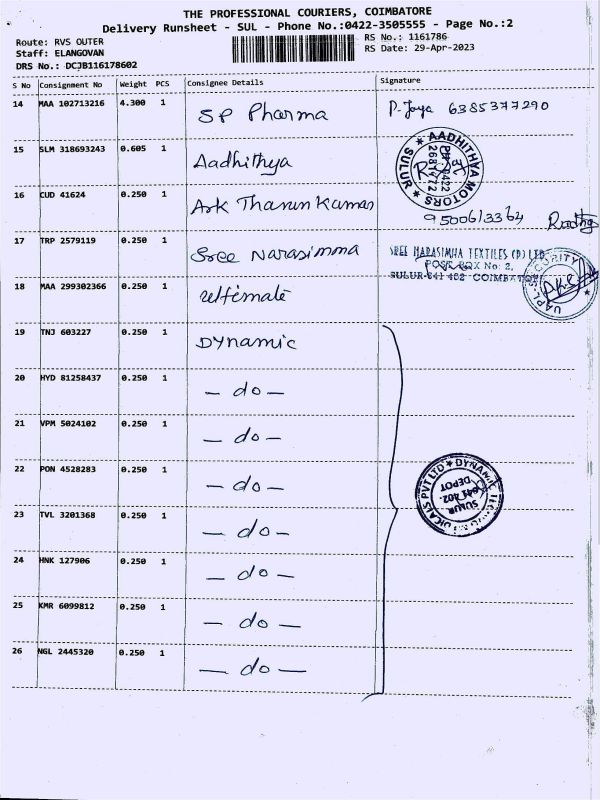 THE PROFESSIONAL COURIERS, COIMBATORE
Delivery Runsheet - SUL - Phone No.:0422-3505555 - Page No.:2
Route: RVS OUTER
RS No.: 1161786
Staff: ELANGOVAN
RS Date: 29-Apr-2023
DRS No.: DCJB116178602
S No Consignment No Weight PCS Consignee Details Signature
14 MAA 102713216 4.300 1 SP Pharma P. Jaya 6385377290
15 SLM 318693243 0.605 1 Aadhithya
AADHITHYA MOTORS
SULUR
16 CUD 41624 0.250 1 Ark Tharun Kumar 9500613364
17 TRP 2579119 0.250 1 Sree Narasimma
SREE NARASIMHA TEXTILES (P) LTD
POST BOX No: 2,
SULUR-641 402 COIMBATORE
UAPL-SECURITY
18 MAA 299302366 0.250 1 Ultimate
19 TNJ 603227 0.250 1 Dynamic
20 HYD 81258437 0.250 1 - do -
21 VPM 5024102 0.250 1 - do -
22 PON 4528283 0.250 1 - do -
DYNAMIC
PVT LTD
SULUR
641 402
DEPOT
23 TVL 3201368 0.250 1 - do -
24 HNK 127906 0.250 1 - do -
25 KMR 6099812 0.250 1 - do -
26 NGL 2445320 0.250 1 - do -